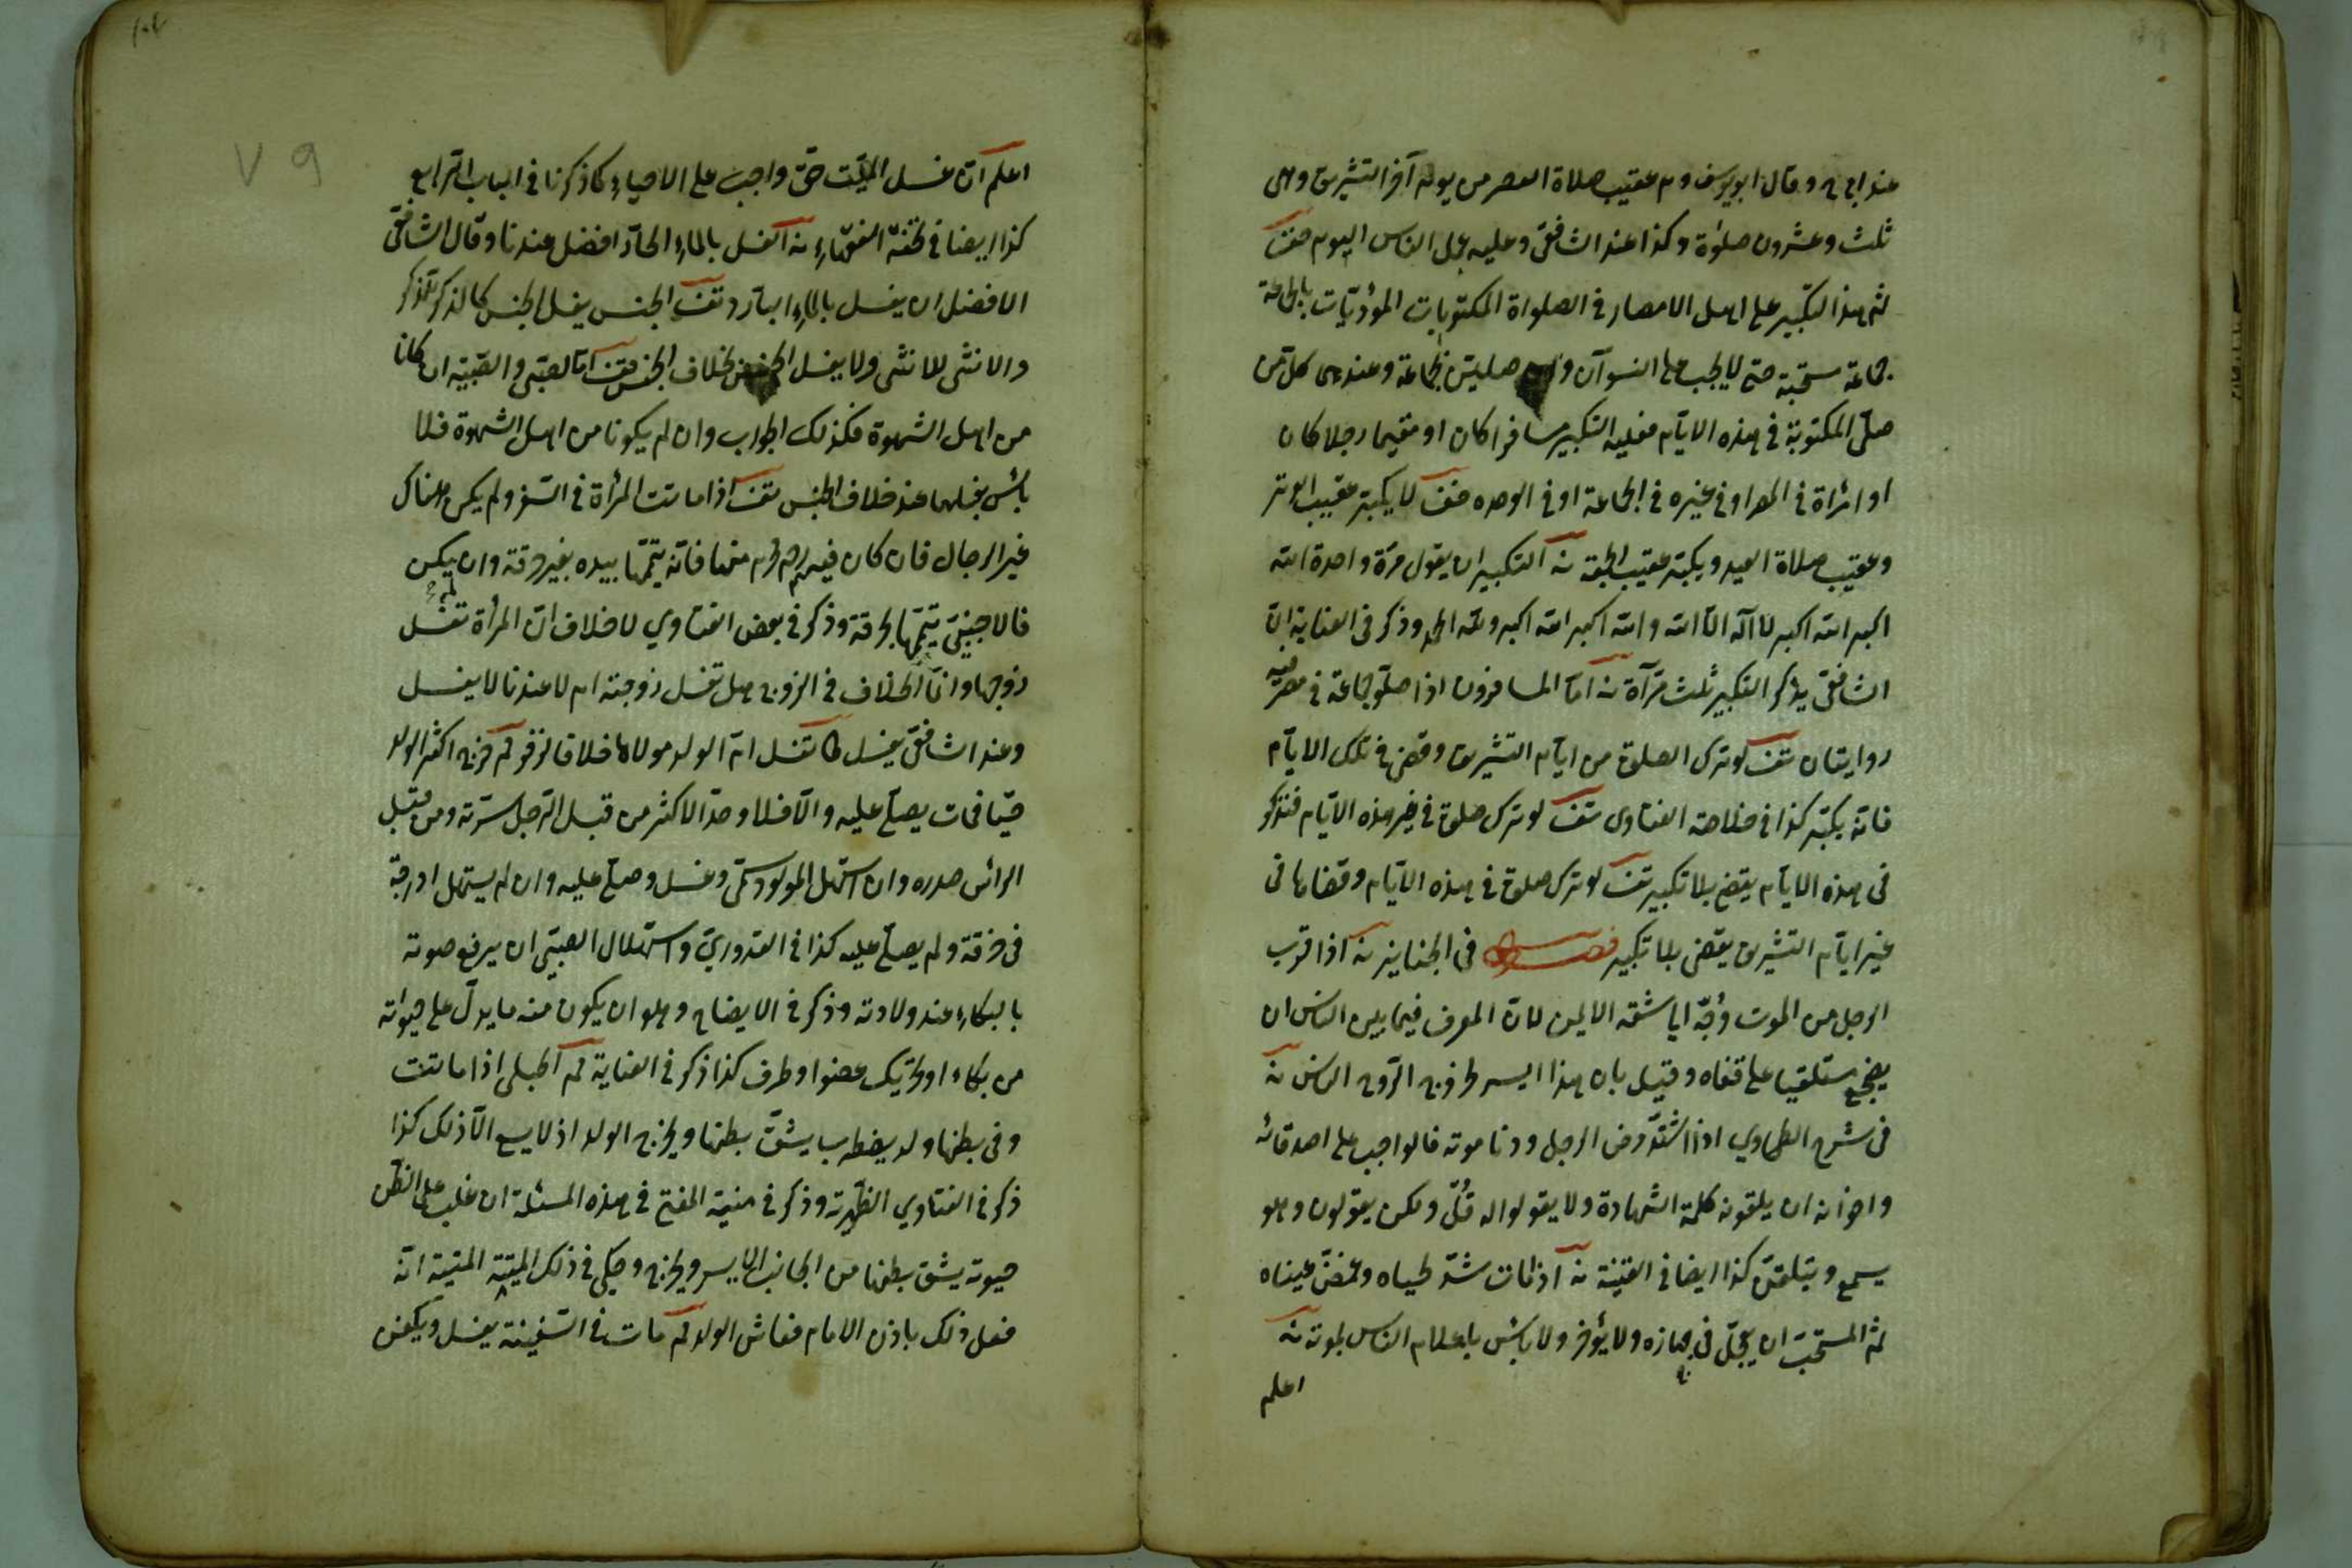 عند ابى ح وقال ابو يوسف وم عقيب صلاة العصر من يوم آخر التشريق وهى
ثلث وعشرون صلوٰة وكذا عند الشافعىّ وعليه عمل الناس اليوم
ثم هذا التكبير على اهل الامصار فى الصلواة المكتوبات المؤديّات بالجماعة
جماعة مستحبّة حتى لا يجب على النسوآن وان صلين بجماعة وعندهما كل من
صلّى المكتوبة فى هذه الايّام فعليه التكبير مسافرا كان او مقيما رجلا كان
او امرٔاة فى المصر او فى غيره فى الجماعة او فى الوحده لا يكبّر عقيب الوتر
وعقيب صلاة العيد ويكبّر عقيب الجمعة التكبير ان يقول مرّة واحدة الله
اكبر الله اكبر لا اله الّا الله والله اكبر الله اكبر ولله الحمد وذكر فى العناية انّ
الشافعىّ يذكر التكبير ثلث مرّآة امّا المسافرون اذا صلّو جماعة فى مصر ففيه
روايتان لو ترك الصلوة من ايّام التشريق وقضى فى تلك الايّام
فانّه يكبّر كذا فى خلاصة الفتاوى لو ترك صلوة فى غير هذه الايّام فتذكر
فى هذه الايّام يقضى بلا تكبير لو ترك صلوة فى هذه الايّام وقضاها فى
غير ايّام التشريق يقضى بلا تكبير فصل فى الجنايز اذا قرب
الرجل من الموت وُجّه ايا شقّه الايمن لانّ المعرف فيما بين الناس ان
يضجع مستلقيا على قفاه وقيل بان هذا ايسر لخروج الرّوح الناس
فى شرح الطحاوي اذا اشتدّ مرض الرجل ودنا موته فالواجب على اصدقائه
واخوانه ان يلقونه كلمة الشهادة ولا يقولوا له قُلْ ولكن يقولون وهو
يسمع ويتلقنّ كذا ايضا فى القنية اذا مات شدّ لحياه وغمّض عيناه
ثم المستحبّ ان يعجّل فى جهازه ولا يؤخر ولا بأس باعلام الناس بموته
اعلم
اعلم انّ غسل الميّت حقّ واجب على الاحياء كما ذكرنا فى الباب الرابع
كذا ايضا فى تحفة الفقهاء الغسل بالماء الحارّ افضل عندنا وقال الشافعىّ
الافضل ان يغسل بالماء البارد الجنس يغسل الجنس كالذكر للذكر
والانثى للانثى ولا يغسل الجنس خلاف الجنس امّا الصبّى والصّبيّة ان كانا
من اهل الشهوة فكذلك الجواب وان لم يكونا من اهل الشهوة فلا
بأس بغسلهما عند خلاف الجنس اذا ماتت المرأة فى السّفر ولم يكن هناك
غير الرجال فان كان فيهم رحم محرم منها فانّه يتيمّها بيده بغير خرقة وان لم يكن
فالاجنبىّ يتيمّها بخرقة وذكر فى بعض الفتاوي لا خلاف انّ المرأة تغسل
زوجها وانّما الخلاف فى الزوج هل تغسل زوجته ام لا عندنا لا يغسل
وعند الشافعىّ يغسل تغسل امّ الولد مولاها خلافا لزفر خرج اكثر الولد
حيّا فمات يصلّى عليه والّا فلا وحدّ الاكثر من قبل الرّجل سرّته ومن قبل
الرائس صدره وان استهل المولود سمّى وغسل وصلّى عليه وان لم يستهل ادرجه
فى خرقة ولم يصلّى عليه كذا فى القدوريّ واستهلال الصبّى ان يرفع صوته
بالبكاء عند ولادته وذكر فى الايضاح وهو ان يكون منه ما يدلّ على حيوٰته
من بكاء او تحريك عضو او طرف كذا ذكر فى العناية الحبلى اذا ماتت
وفى بطنها ولد يضطرب يشقّ بطنها ويخرج الولد اذ لا يسع الّا ذلك كذا
ذكر فى الفتاوي الظهيرية وذكر فى منية المفتى فى هذه المسئلة ان غلب على الظنّ
حيوته يشق بطنها من الجانب الايسر ويخرج وحكى فى ذلك الميّتة المنية انّه
فعل ذلك باذن الامام فعاش الولد مات فى السّفينة يغسل ويكفن